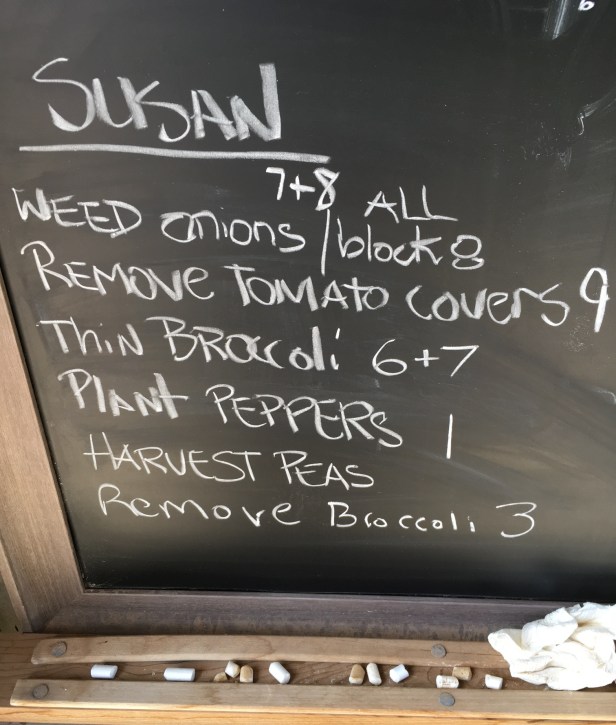 6
SUSAN
7+8 ALL
WEED onions / block 8
REMOVE TOMATO COVERS 9
THIN BROCCOLI 6+7
PLANT PEPPERS 1
HARVEST PEAS
Remove Broccoli 3